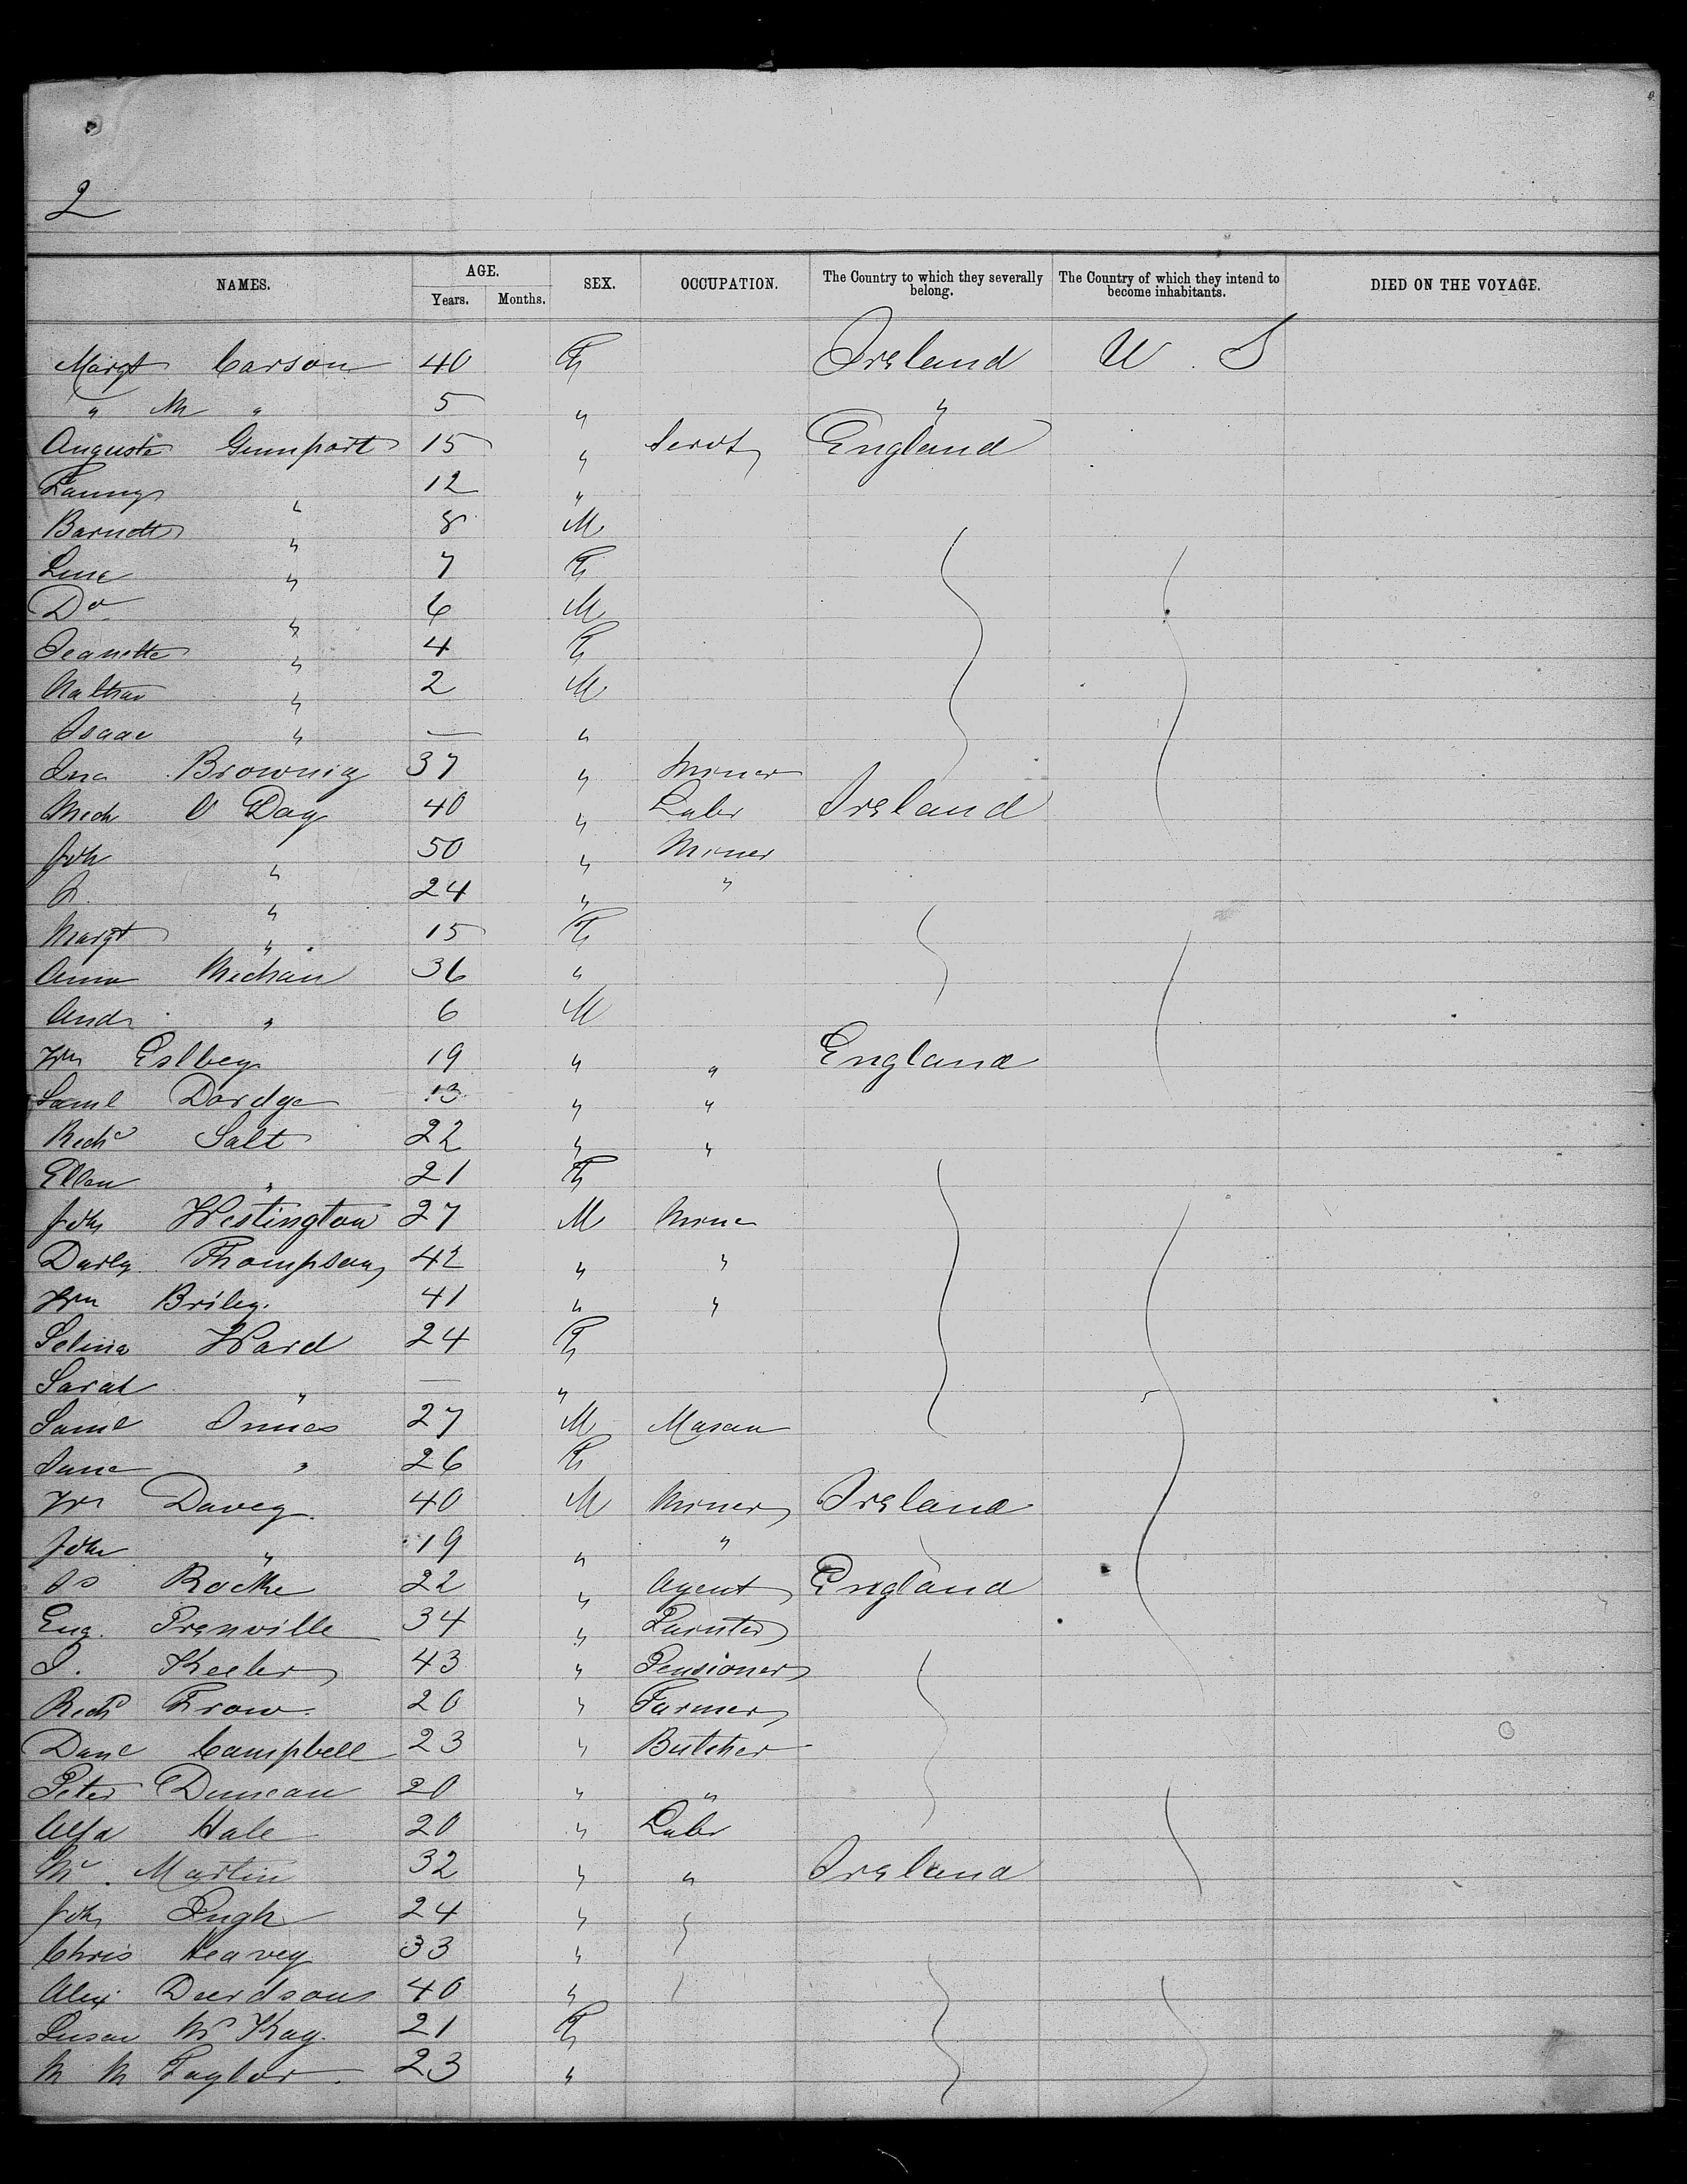 2
NAMES. AGE. Years. Months. SEX. OCCUPATION. The Country to which they severally belong. The Country of which they intend to become inhabitants. DIED ON THE VOYAGE.
Margt Carson 40 F Ireland U.S
" M " 5 " "
Auguste Gumport 15 " Servt England
Fanny " 12 "
Barndt " 8 M
Line " 7 F
Do " 6 M
Jeanette " 4 F
Nathan " 2 M
Isaac " — "
Jna Brownig 37 " Miner
Mich O Day 40 " Labr Ireland
Joh " 50 " Miner
" 24 " "
Margt " 15 F
Anna Mechan 36 "
And " 6 M
Wm Eslbey 19 " " England
Saml Dordge 13 " "
Richd Salt 22 " "
Ellen " 21 F
Joh Westington 27 M Mine
Darby Thompson 42 " "
Wm Briley. 41 " "
Selina Ward 24 F
Sarah " — "
Saml Innes 27 M Mason
Jane " 26 F
Wm Davey 40 M Miner Ireland
John " 19 " "
Js Rocke 22 " Agent England
Eug. Prenville 34 " Painter
J. Keeler 43 " Pensioner
Richd Frow 20 " Farmer
Danl Campbell 23 " Butcher
Peter Duncan 20 " "
Alfd Hale 20 " Labr
Martin 32 " " Ireland
Joh Pugh 24 "
Chris Heavey 33 "
Alex Deerdsons 40 "
Susan McKay. 21 F
M M Taylor 23 "